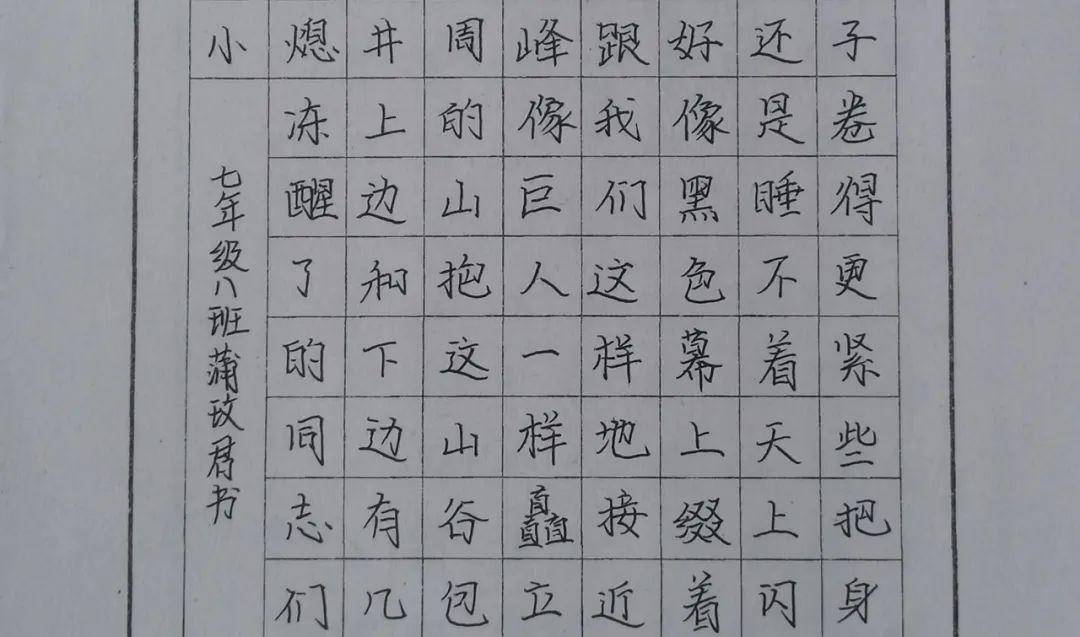 子卷得更紧些把身
还是睡不着天上闪
好像黑色幕上缀着
跟我们这样地接近
峰像巨人一样矗立
周的山抱这山谷包
井上边和下边有几
熄冻醒了的同志们
小
七年级八班蒲玟君书